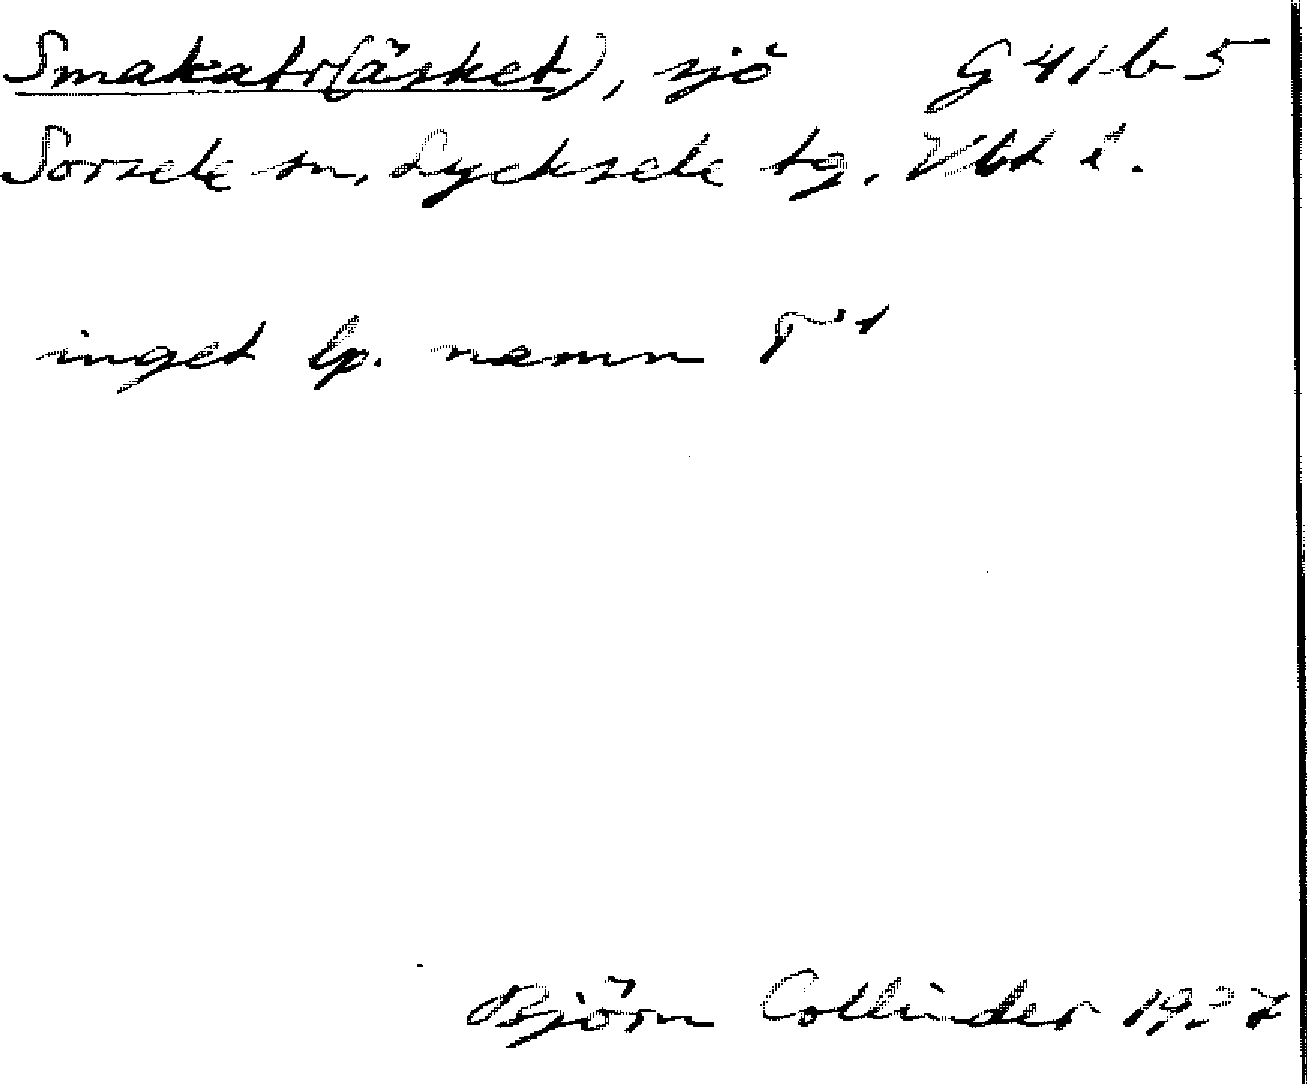 Smakatr(äsket), sjö G 41 b 5
Sorsele sn, Lycksele tg. Vbt l.
inget lp. namn T¹
Björn Collinder 1937